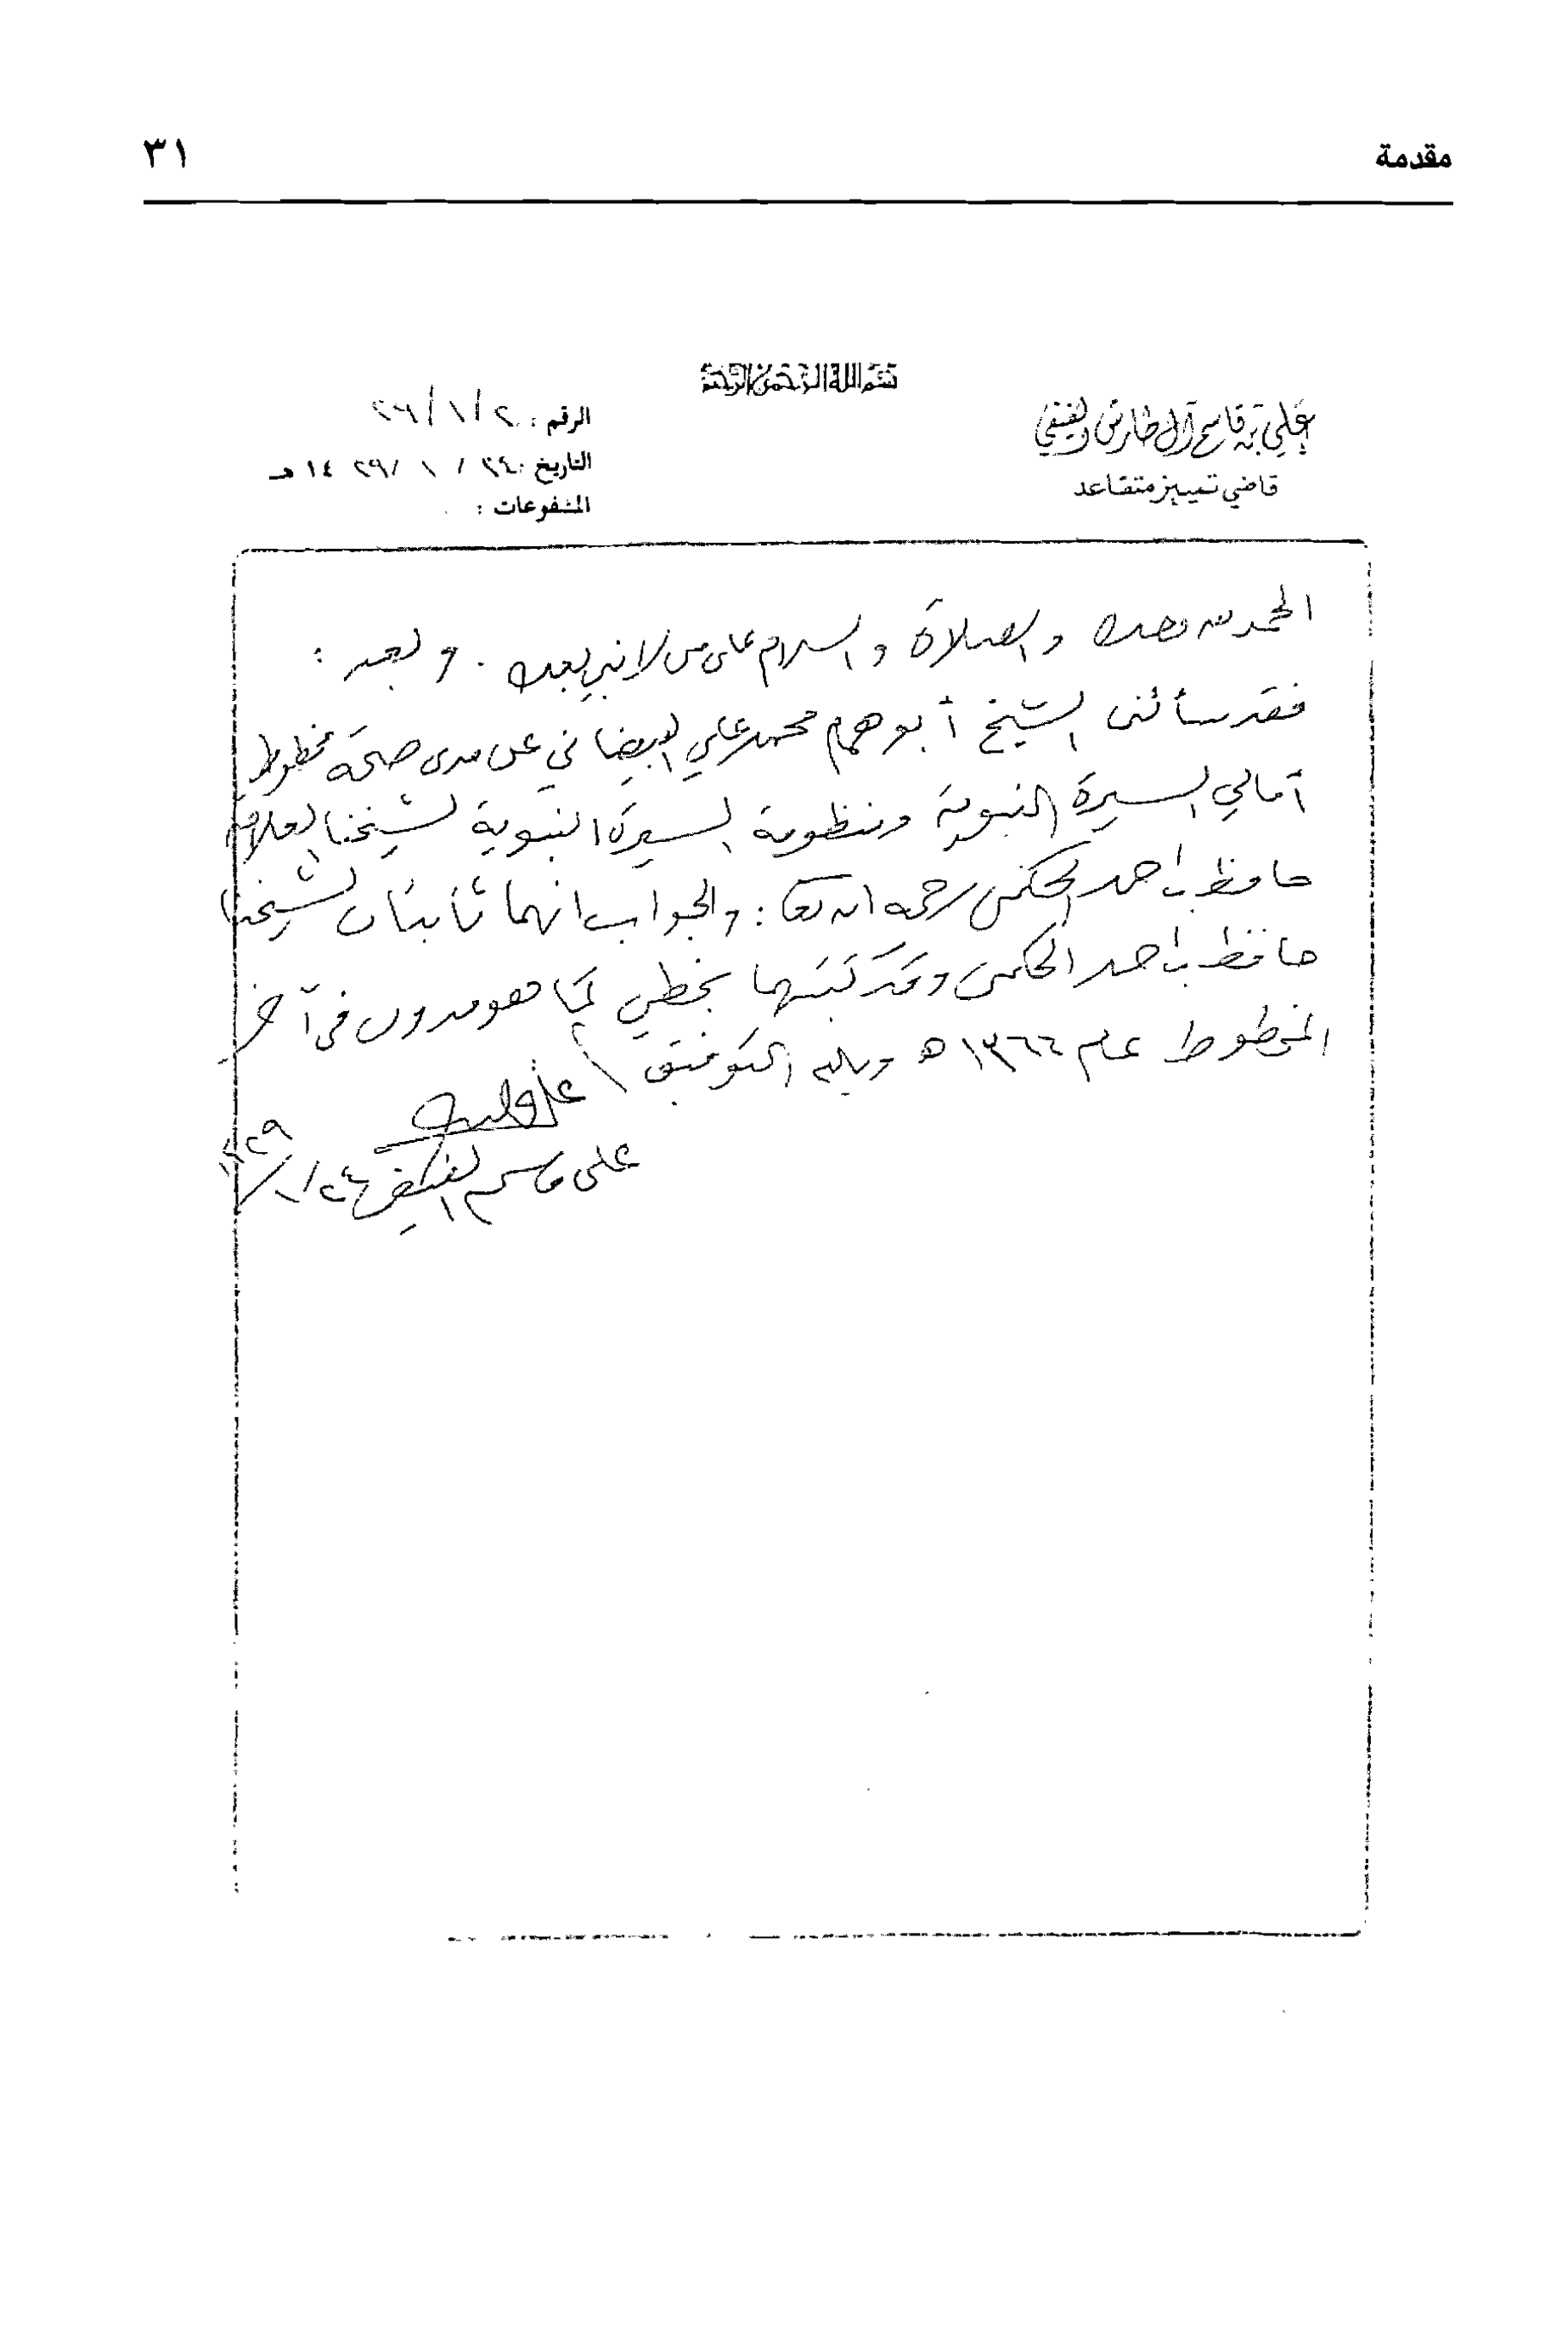 مقدمة
٣١
بسم الله الرحمن الرحيم
علي بن قاسم آل طارش الفيفي
قاضي تمييز متقاعد
الرقم : ٢٦/١/٢
التاريخ ٢٤ / ١ / ١٤٢٩ هـ
المشفوعات :
الحمد لله وحده والصلاة والسلام على من لا نبي بعده . وبعد :
فقد سألني الشيخ أبو همام محمد علي البيضاني عن مدى صحة مخطوط
أمالي السيرة النبوية ومنظومة السيرة النبوية لشيخنا العلامة
حافظ بن أحمد الحكمي رحمه الله تعالى : والجواب انهما ثابتان لشيخنا
حافظ بن أحمد الحكمي وقد كتبتهما بخطي كما هو مدون في آخر
المخطوط عام ١٣٦٦ ه وبالله التوفيق
علي قاسم الفيفي ٢٤/١/١٤٢٩